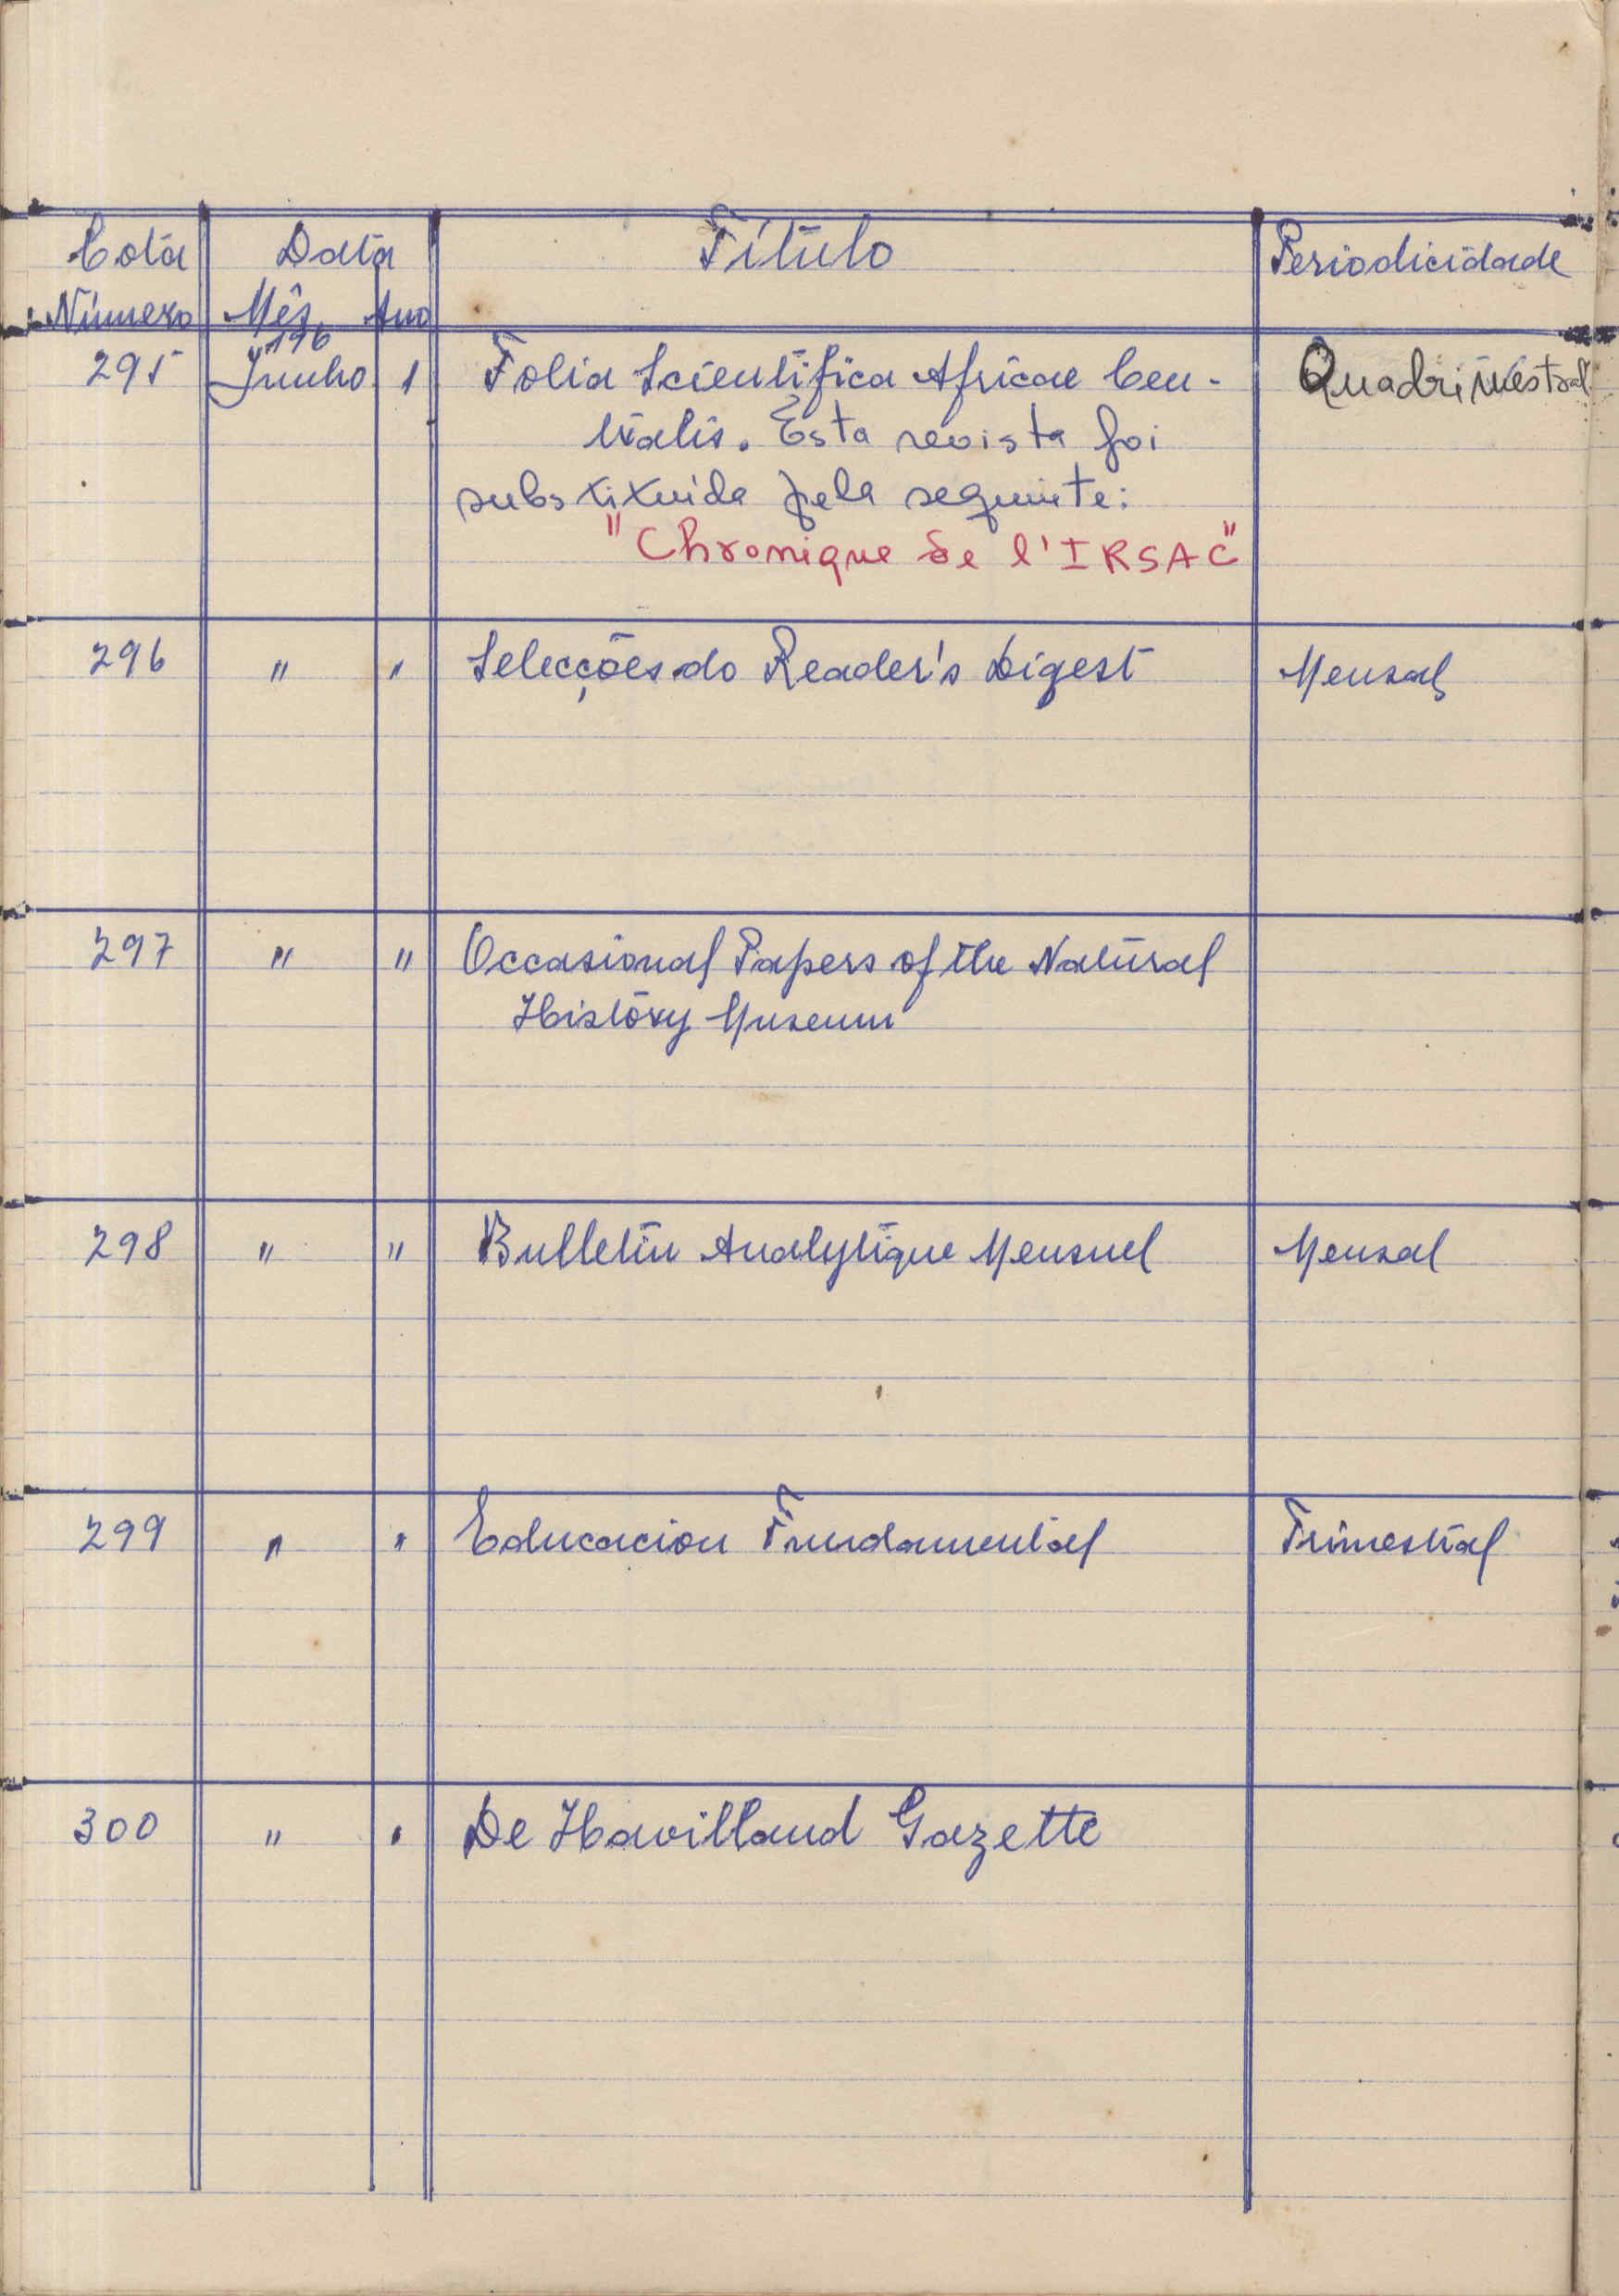 Cota Data Título Periodicidade
Número Mês Ano
196
295 Junho 1 Folia Scientifica Africae Cen- Quadrimestral
tralis. Esta revista foi
substituida pela seguinte:
"Chronique de l'IRSAC"
296 " " Selecções do Reader's Digest Mensal
297 " " Occasional Papers of the Natural
History Museum
298 " " Bulletin Analytique Mensuel Mensal
299 " " Educacion Fundamental Trimestral
300 " " De Havilland Gazette